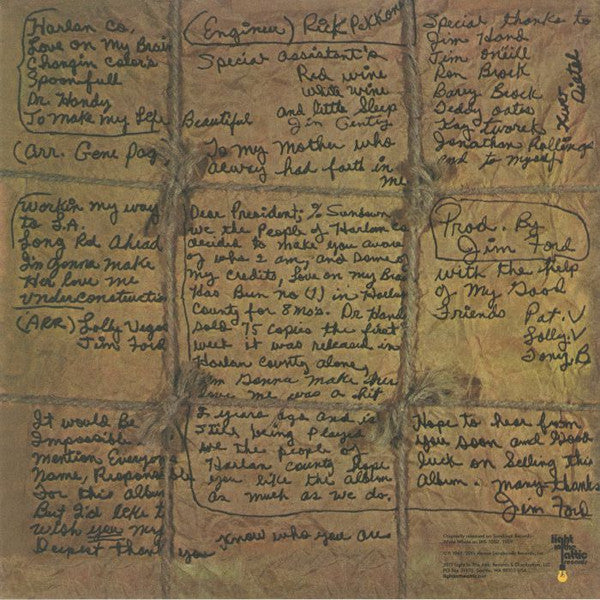 Harlan Co.
Love on My Brain
Changin Colors
Spoonfull
Dr. Handy
To Make my Life Beautiful
(Arr. Gene Pag
(Engineer) Rick Pekkonen
Special assistant's
Red wine
white wine
and little sleep
Jim Gentry
To my Mother who
alway had faith in
me
Special thanks to
Jim Hand
Jim Oneill
Ron Brock
Barry Brock
Teddy oates
Kay Twork
Jonathan Rollings
and to myself
Workin my way
to L.A.
Long Rd Ahead
I'm Gonna Make
Her love me
Under construction
(ARR) Lolly Vegas
Jim Ford
Dear President; % Sundown
we the People of Harlan Co
decided to make you aware
of who I am, and some of
my credits, Love on my Brain
Has Bun no (1) in Harlan
County for 8 Mo's. Dr Handy
sold 75 copies the first
week it was released in
Harlan county alone,
I'm Gonna Make Her
love me was a hit
2 years ago and is
still being Played
we the people of
Harlan county hope
you like the album
as much as we do,
Prod. By
Jim Ford
with the help
of My Good
Friends Pat. V
Lolly. V
Tony. B
It would Be
Impossible
Mention Everyone
Name, Responsible
For this album
But I'd like to
wish you my
Deepest thank you
know who you are
Hope to hear from
you soon and Good
luck on Selling this
Album. Many thanks
Jim Ford
Originally released on Sundown Records
light
in the
attic
records
lightintheattic.net